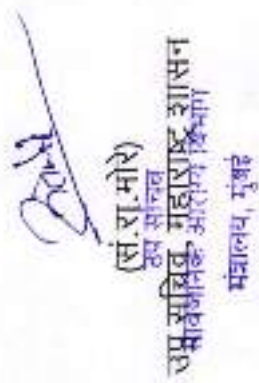 (सं.रा.मोरे)
उप सचिव
उप सचिव, महाराष्ट्र शासन
सार्वजनिक आरोग्य विभाग
मंत्रालय, मुंबई